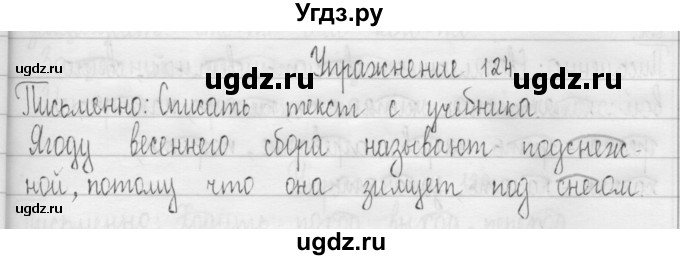 Угдз.ру
Упражнение 124
ugdz.ru ugdz.ru
Письменно: Списать текст с учебника.
Ягоду весеннего сбора называют подснеж-
ной, потому что она зимует под снегом.
ugdz.ru ugdz.ru
ugdz.ru